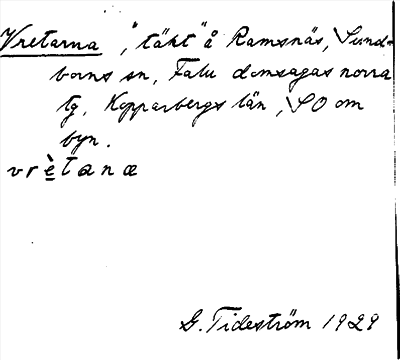 Vretarna, "täkt" å Ramsnäs, Sund-
borns sn, Falu domsagas norra
tg, Kopparbergs län, SO om
byn.
vrètanæ
G. Tideström 1929